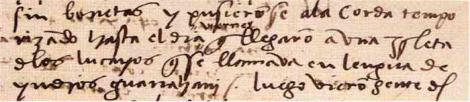 sin bonetas y pusieronse a la corda tempo
rizando hasta el dia viernes q llegarō a vna Isleta
dlos lucayos q se llamava en lengua de
yndios guanahani / luego vierō gente d